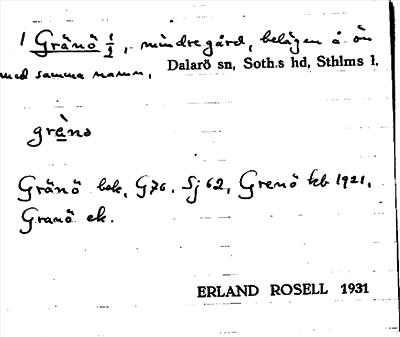 1 Gränö ½, mindre gård, belägen å ön
med samma namn, Dalarö sn, Soth.s hd, Sthlms l.
grènö
Gränö bok, G76. Sj 62, Grenö kb 1921.
Granö ek.
ERLAND ROSELL 1931